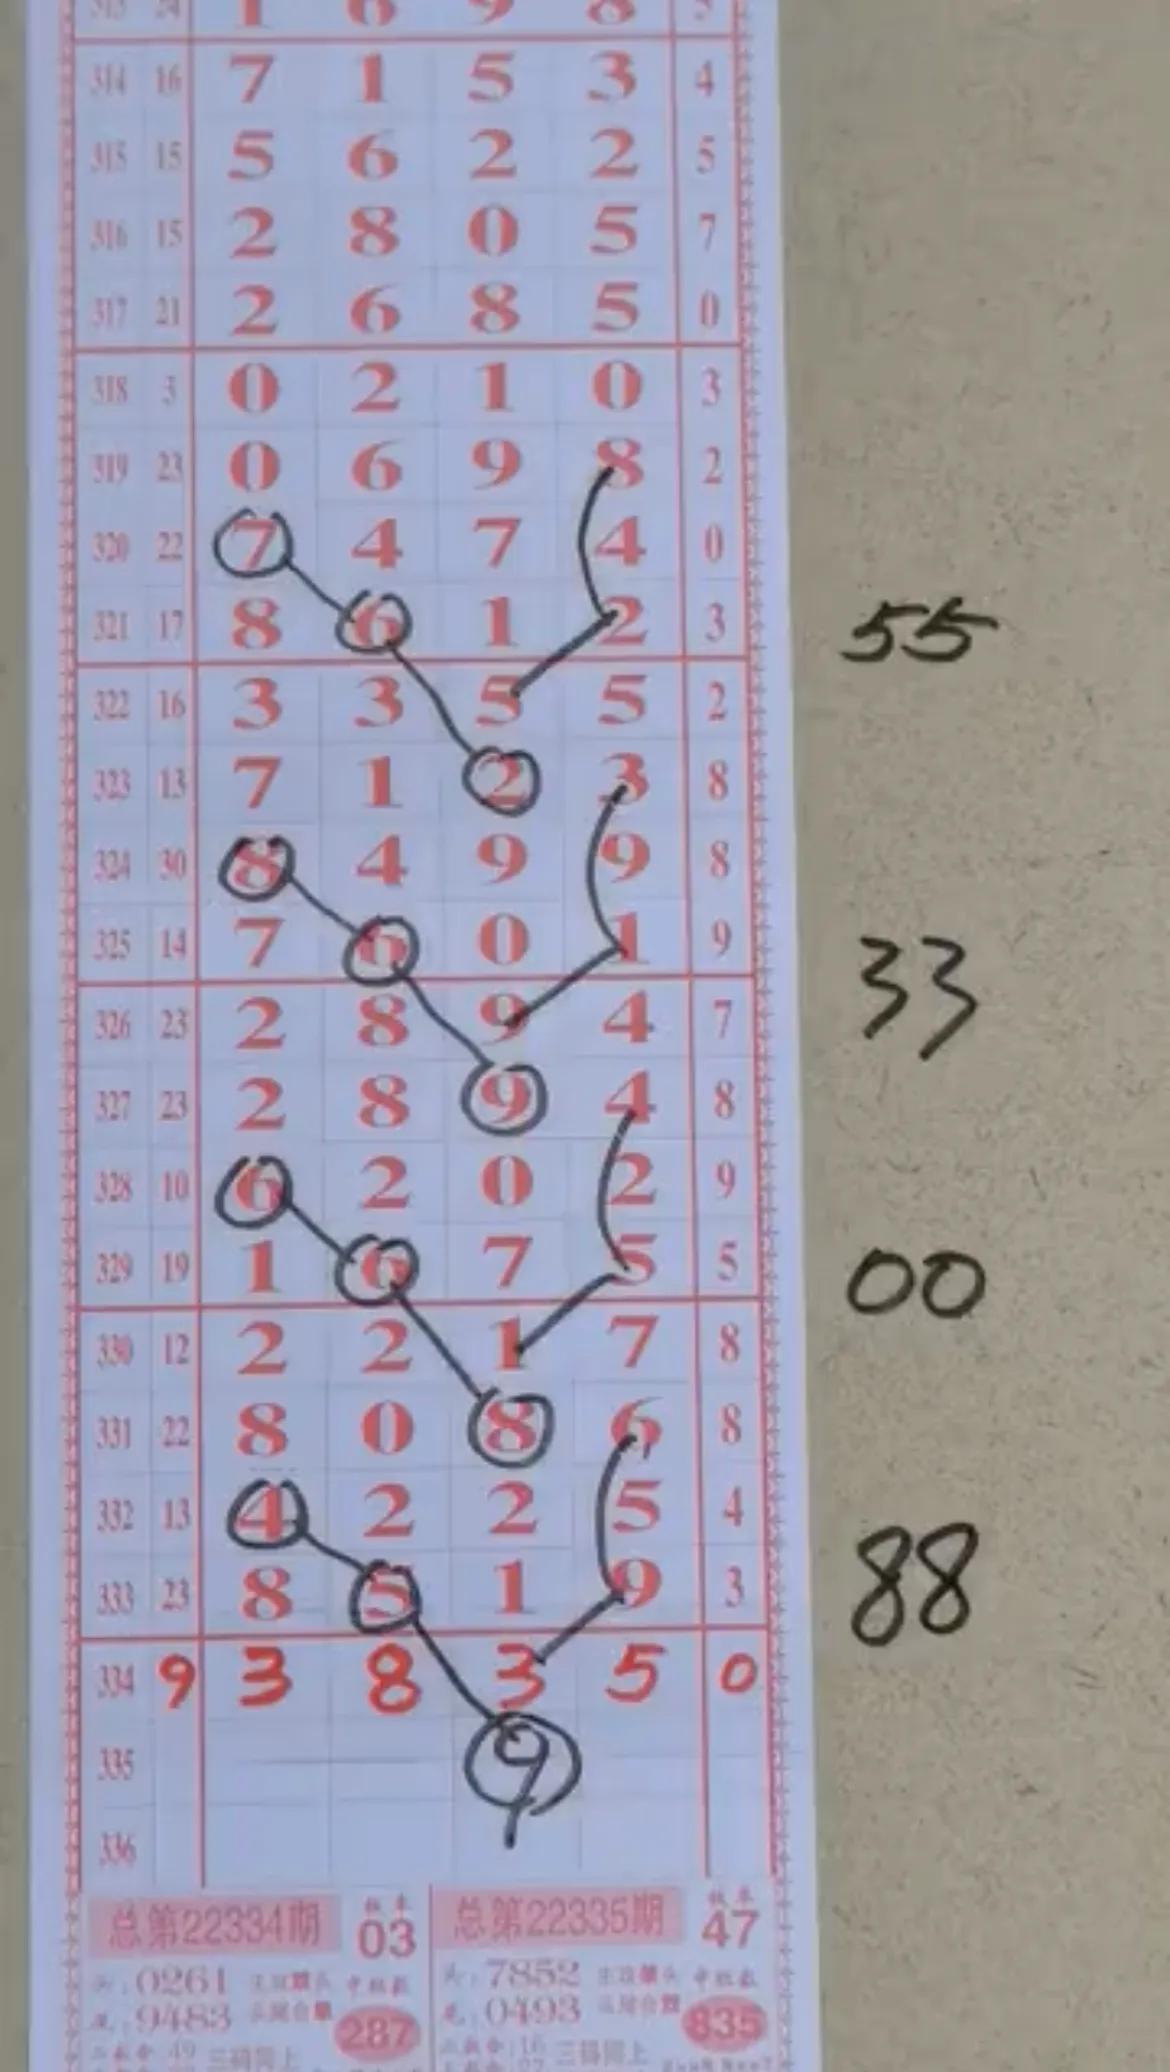 313 24 1 6 9 8 5
314 16 7 1 5 3 4
315 15 5 6 2 2 5
316 15 2 8 0 5 7
317 21 2 6 8 5 0
318 3 0 2 1 0 3
319 23 0 6 9 8 2
320 22 7 4 7 4 0
321 17 8 6 1 2 3 55
322 16 3 3 5 5 2
323 13 7 1 2 3 8
324 30 8 4 9 9 8
325 14 7 6 0 1 9 33
326 23 2 8 9 4 7
327 23 2 8 9 4 8
328 10 6 2 0 2 9
329 19 1 6 7 5 5 00
330 12 2 2 1 7 8
331 22 8 0 8 6 8
332 13 4 2 2 5 4
333 23 8 5 1 9 3 88
334 9 3 8 3 5 0
335 9
336
总第22334期 03 总第22335期 47
头:0261 头:7852
尾:9483 287 尾:0493 835
三码同上 三码同上